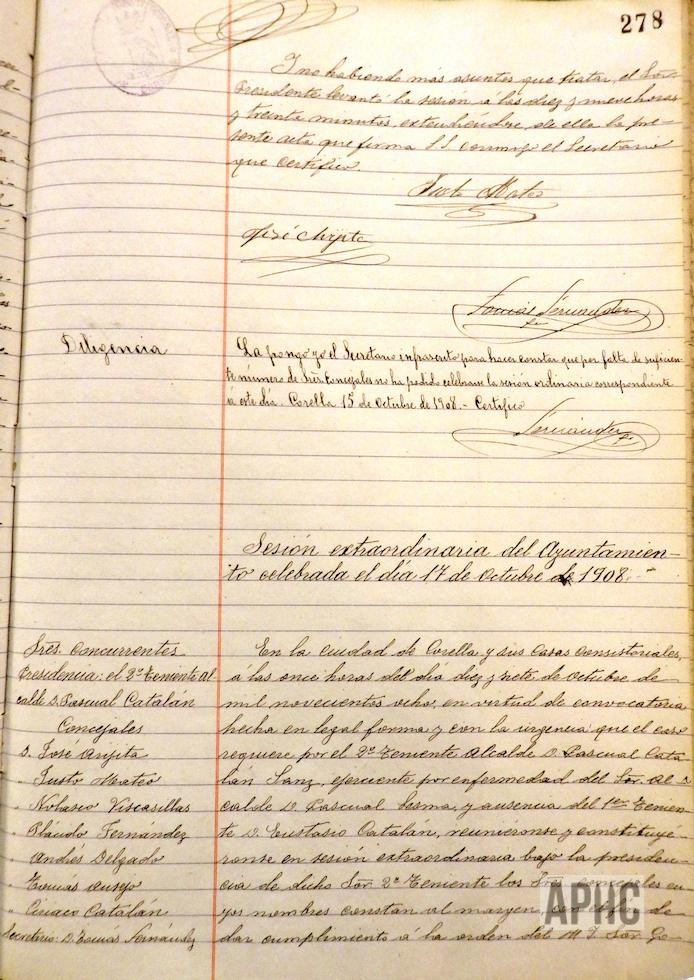 278
I no habiendo más asuntos que tratar, el Sor.
Presidente levantó la sesión á las diez y nueve horas
y treinta minutos, extendiéndose de ella la pre-
sente acta que firma S.S. conmigo el Secretario
que certifico.
Justo Mateo
José Arijita
Tomás Fernández
Diligencia
La pongo yo el Secretario infrascrito para hacer constar que por falta de suficien-
te número de Sres. Concejales no ha podido celebrarse la sesión ordinaria correspondiente
á este día. Corella 15 de Octubre de 1908.- Certifico
Fernández
Sesión extraordinaria del Ayuntamien-
to celebrada el día 17 de Octubre de 1908.
Sres. Concurrentes
Presidencia: el 2º Teniente Al
calde D. Pascual Catalán
Concejales
D. José Arijita
" Justo Mateo
" Nolasco Viscasillas
" Plácido Fernández
" Andrés Delgado
" Tomás Ausejo
" Ciriaco Catalán
Secretario: D. Tomás Fernández
En la ciudad de Corella y sus Casas Consistoriales,
á las once horas del día diez y siete de Octubre de
mil novecientos ocho, en virtud de convocatoria
hecha en legal forma y con la urgencia que el caso
requiere por el 2º Teniente Alcalde D. Pascual Cata
lán Sanz, ejerciente por enfermedad del Sor. Al-
calde D. Pascual Sesma, y ausencia del 1er Tenien-
te D. Eustasio Catalán, reuniéronse y constituyé-
ronse en sesión extraordinaria bajo la presiden-
cia de dicho Sor. 2º Teniente los Sres. concejales cu-
yos nombres constan al margen, de
dar cumplimiento á la orden del M. I. Sor. Go-
APHC